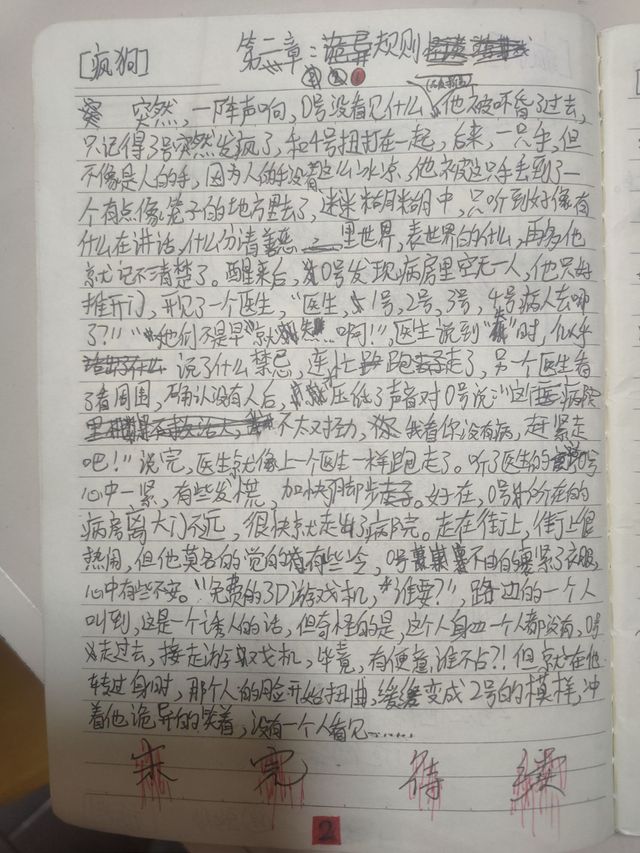 [疯狗]
第二章：诡异规则
突然，一阵声响，0号没看见什么，他被吓昏了过去，
只记得3号突然发疯了，和4号扭打在一起，后来，一只手，但
不像是人的手，因为人的手没有这么冰凉，他被这只手丢到了一
个有点像笼子的地方里去了，迷迷糊糊中，只听到好像有
什么在讲话，什么分清善恶，里世界，表世界的什么，再多他
就记不清楚了。醒来后，0号发现病房里空无一人，他只好
推开门，开见了一个医生，"医生，1号，2号，3号，4号病人去哪
了?!""她们不是早就失…啊!"，医生说到"失"时，似乎
说了什么禁忌，连忙跑走了，另一个医生看
了看周围，确认没有人后，压低了声音对0号说："这病院
不太对劲，我看你没有病，赶紧走
吧!"说完，医生就像上一个医生一样跑走了。听了医生的0号
心中一紧，有些发慌，加快了脚步。好在，0号所在的
病房离大门不远，很快就走出了病院。走在街上，街上很
热闹，但他莫名的觉的有些冷，0号不由的裹紧了衣服，
心中有些不安。"免费的3D游戏机，谁要?"，路边的一个人
叫到，这是一个诱人的话，但奇怪的是，这个人身边一个人都没有，0号
走过去，接走游戏机，毕竟，有便宜谁不占?!但就在他
转过身时，那个人的脸开始扭曲，缓缓变成2号的模样，冲
着他诡异的笑着，没有一个人看见……
未 完 待 续
2